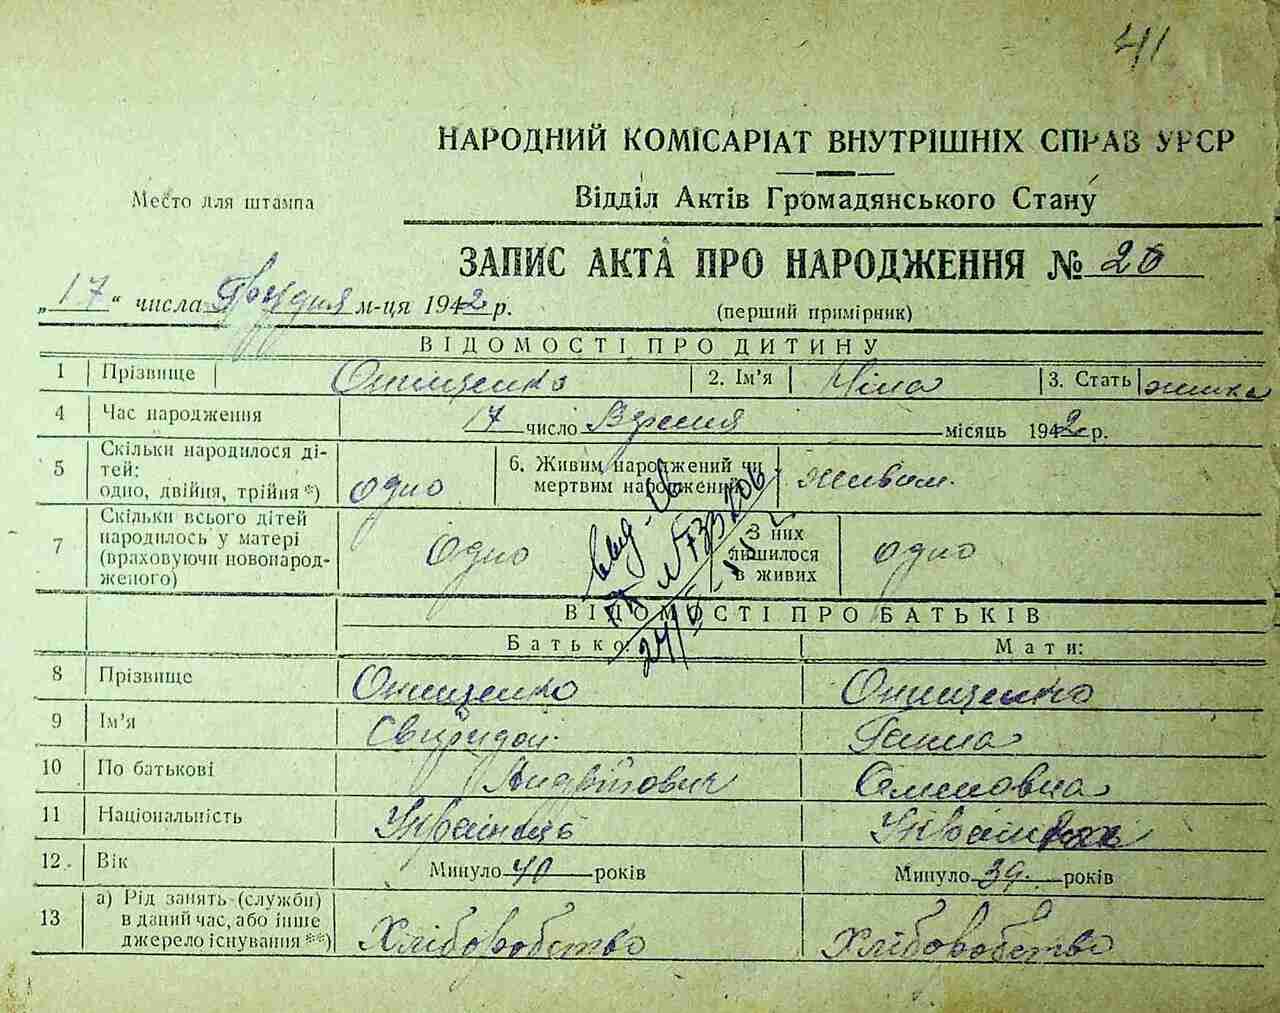 41
НАРОДНИЙ КОМІСАРІАТ ВНУТРІШНІХ СПРАВ УРСР
Место для штампа
Відділ Актів Громадянського Стану
ЗАПИС АКТА ПРО НАРОДЖЕННЯ № 20
"17" числа Грудня м-ця 1942 р.
(перший примірник)
ВІДОМОСТІ ПРО ДИТИНУ
1 Прізвище Онищенко 2. Ім'я Ніна 3. Стать жінка
4 Час народження 17 число Вересня місяць 1942 р.
5 Скільки народилося ді-
тей:
одно, двійня, трійня *) одно 6. Живим народжений чи
мертвим народжений живим.
7 Скільки всього дітей
народилось у матері
(враховуючи новонарод-
женого) Одно З них
лишилося
в живих одно
вид. св
№ 733206
ВІДОМОСТІ ПРО БАТЬКІВ
Батько: Мати:
8 Прізвище Онищенко Онищенко
9 Ім'я Свиридон. Ганна
10 По батькові Андрійович Семеновна
11 Національність Українець Українка
12. Вік Минуло 40 років Минуло 39. років
13 а) Рід занять (служби)
в даний час, або інше
джерело існування **) Хліборобство Хліборобство